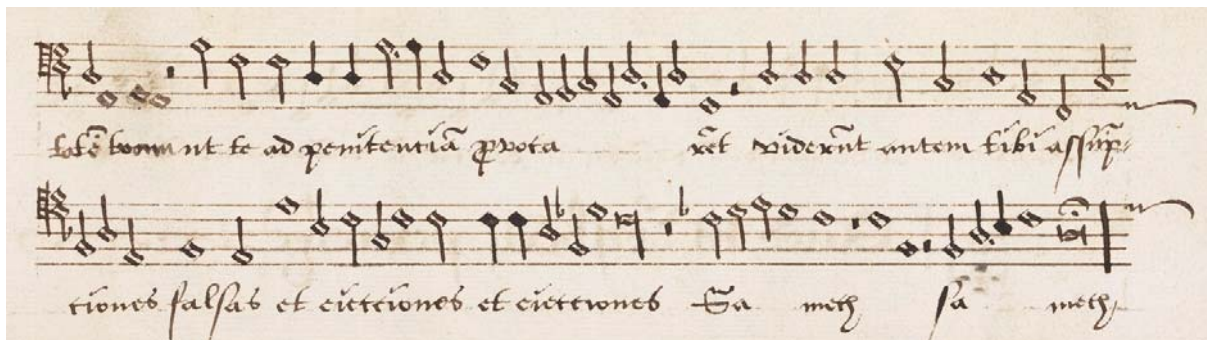 tatē tuam ut te ad penitentiā ꝓvota rēt viderūt autem tibi assūp-
tiones falsas et eiectiones et eiectiones Sa mech sa mech